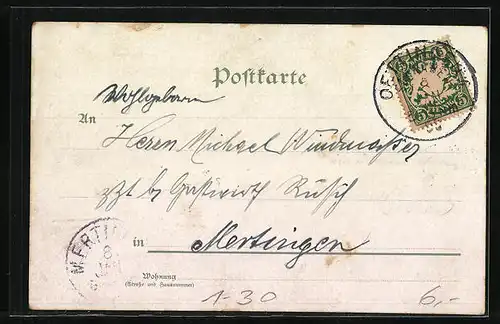 Postkarte
Wohlgeborn
An
Herrn Michael Windmaißer
zzt b. Gastwirth Rusch
in Mertingen
MERTIN
Wohnung
(Straße und Hausnummer)
1-30
6,-
5 5